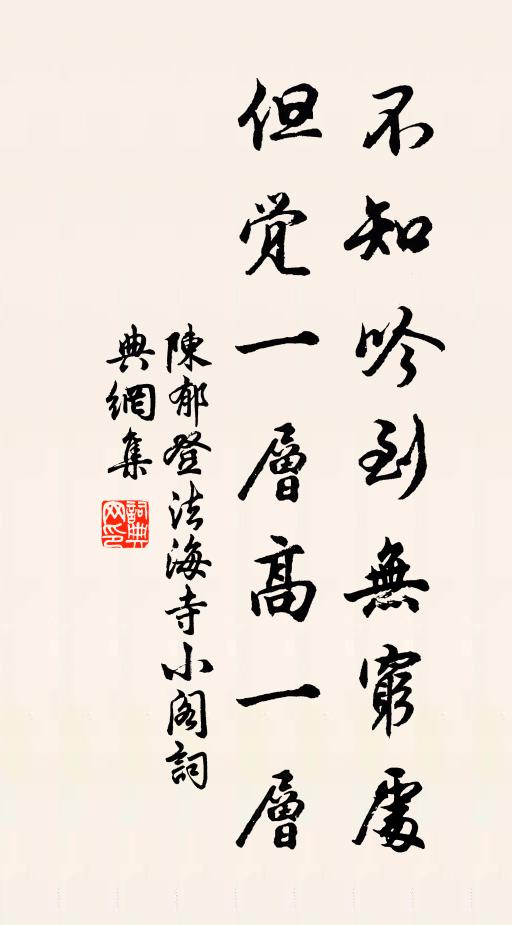 不知吟到無窮處
但覺一層高一層
陳郁登法海寺小閣詞
典網集
詞典网印